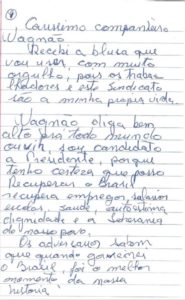 ①
Caríssimo companheiro
Wagnão
Recebi a blusa que
vou usar, com muito
orgulho, pois os traba-
lhadores e este Sindicato
são a minha propria vida.
Wagnão diga bem
alto pra todo mundo
ouvir, sou candidato
a Presidente, porque
tenho certeza que posso
Recuperar o Brasil
recupera empregos, salários
escolas, saúde, autoestima
dignidade e a soberania
do nosso povo.
Os adversarios sabem
que quando governamos
o Brasil, foi o melhor
momento da nossa
história.